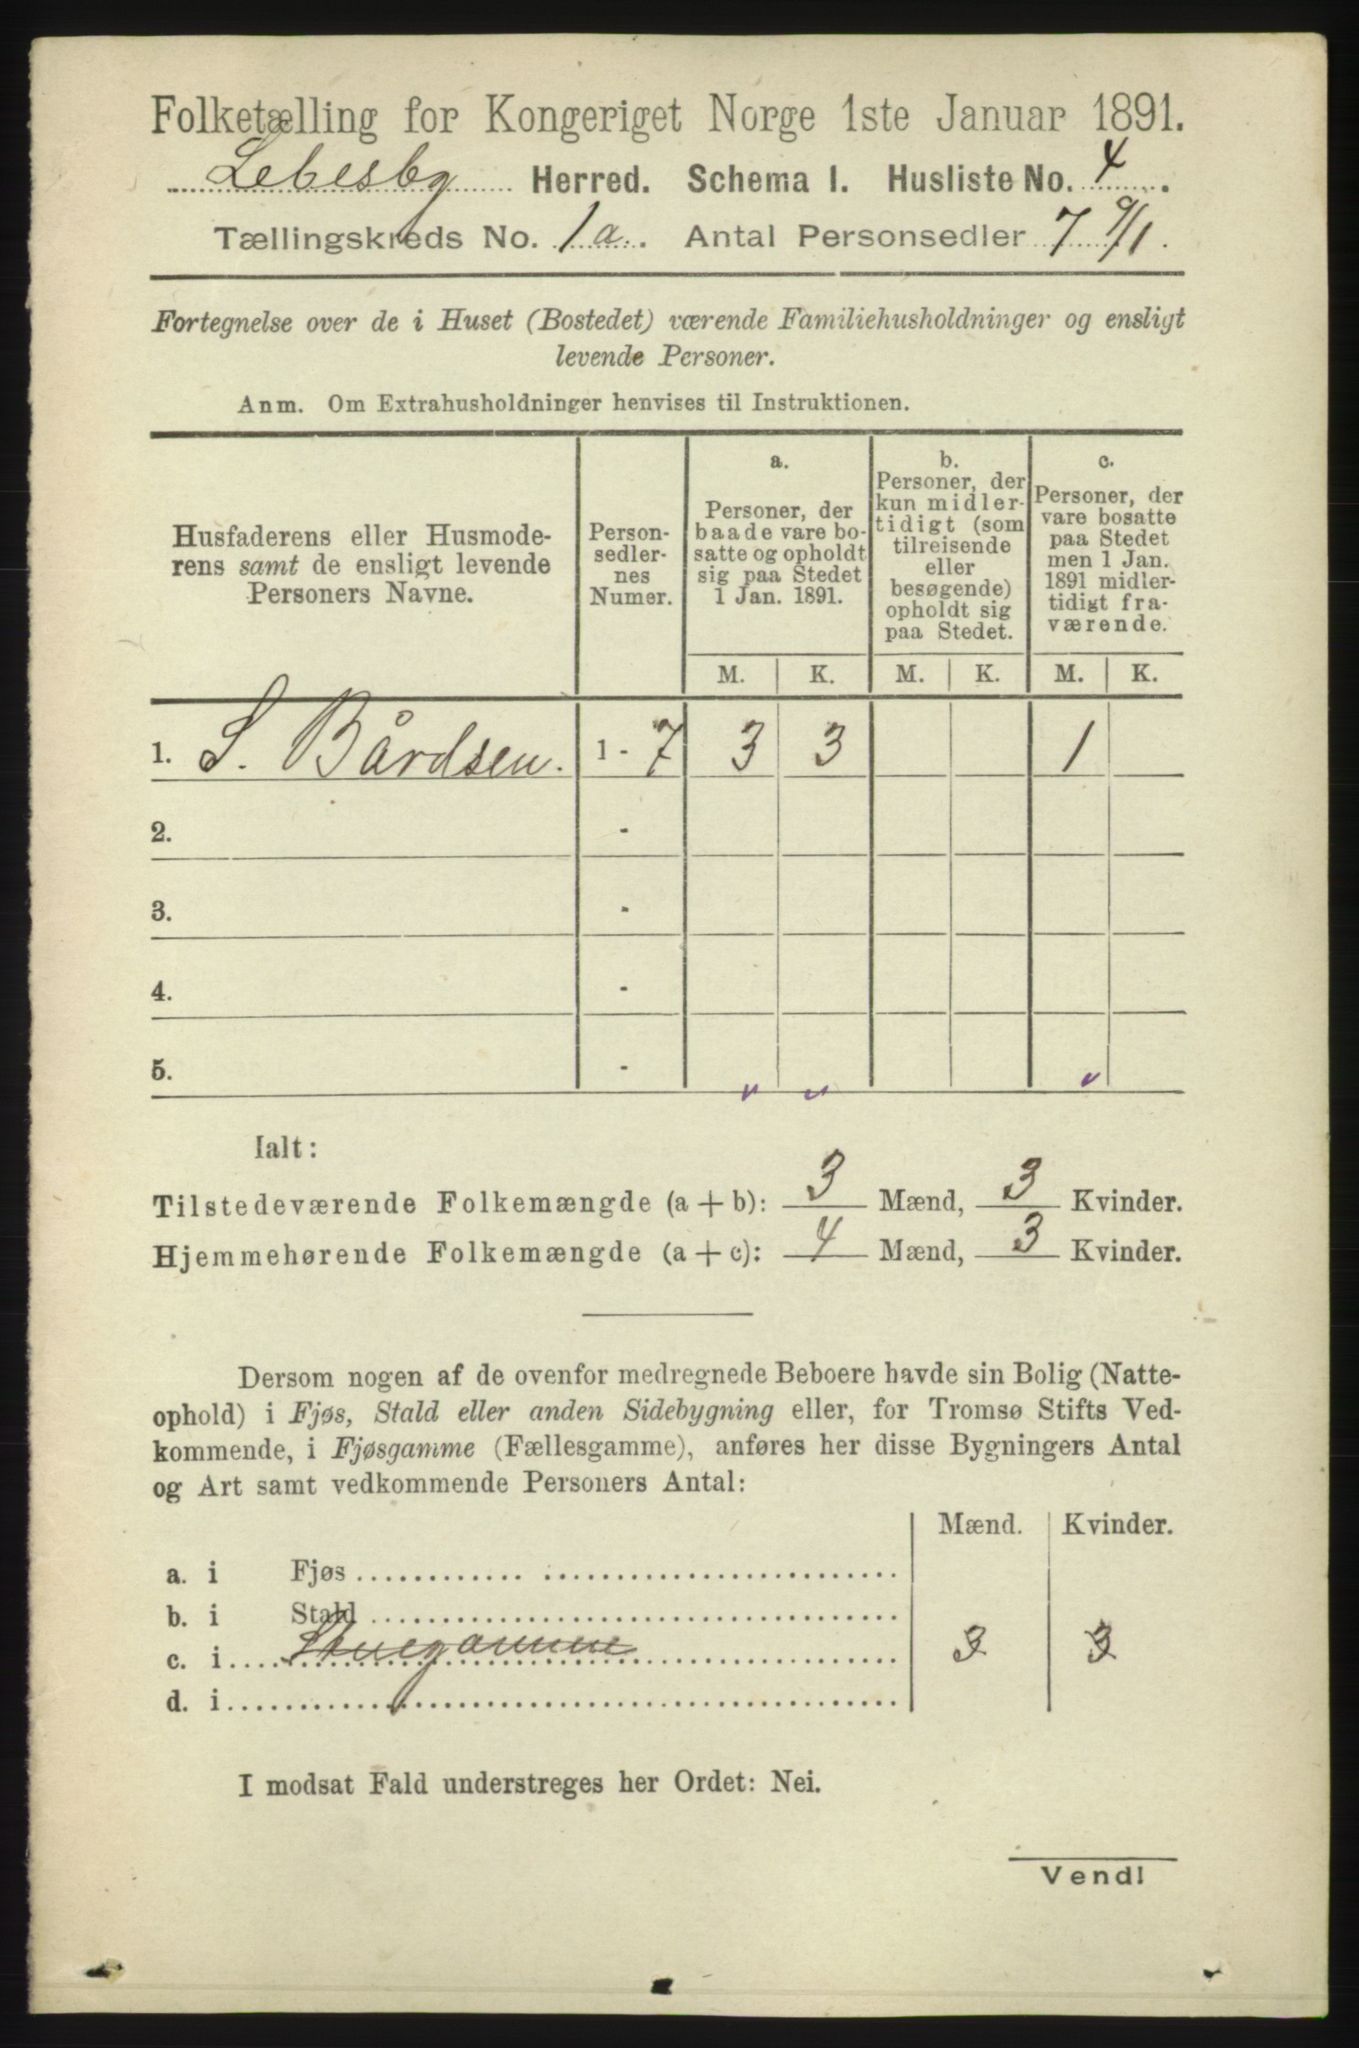 Folketælling for Kongeriget Norge 1ste Januar 1891.
Lebesby Herred. Schema I. Husliste No. 4.
Tællingskreds No. 1a. Antal Personsedler 7 9/1.
Fortegnelse over de i Huset (Bostedet) værende Familiehusholdninger og ensligt
levende Personer.
Anm. Om Extrahusholdninger henvises til Instruktionen.
Husfaderens eller Husmode-
rens samt de ensligt levende
Personers Navne.
Person-
sedler-
nes
Numer.
a.
Personer, der
baade vare bo-
satte og opholdt
sig paa Stedet
1 Jan. 1891.
b.
Personer, der
kun midler-
tidigt (som
tilreisende
eller
besøgende)
opholdt sig
paa Stedet.
c.
Personer, der
vare bosatte
paa Stedet
men 1 Jan.
1891 midler-
tidigt fra-
værende.
M. K. M. K. M. K.
1. S. Bårdsen. 1 - 7 3 3 1
2. -
3. -
4. -
5. -
Ialt:
Tilstedeværende Folkemængde (a + b): 3 Mænd, 3 Kvinder.
Hjemmehørende Folkemængde (a + c): 4 Mænd, 3 Kvinder.
Dersom nogen af de ovenfor medregnede Beboere havde sin Bolig (Natte-
ophold) i Fjøs, Stald eller anden Sidebygning eller, for Tromsø Stifts Ved-
kommende, i Fjøsgamme (Fællesgamme), anføres her disse Bygningers Antal
og Art samt vedkommende Personers Antal:
Mænd. Kvinder.
a. i Fjøs
b. i Stald
c. i Stuegamme 3 3
d. i
I modsat Fald understreges her Ordet: Nei.
Vend!